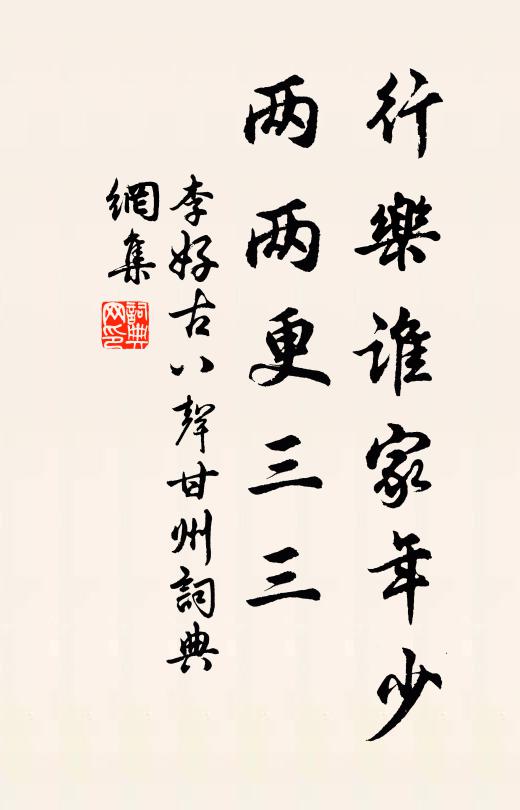 行樂谁家年少
两两更三三
李好古八聲甘州詞典
網集
詞典
网印